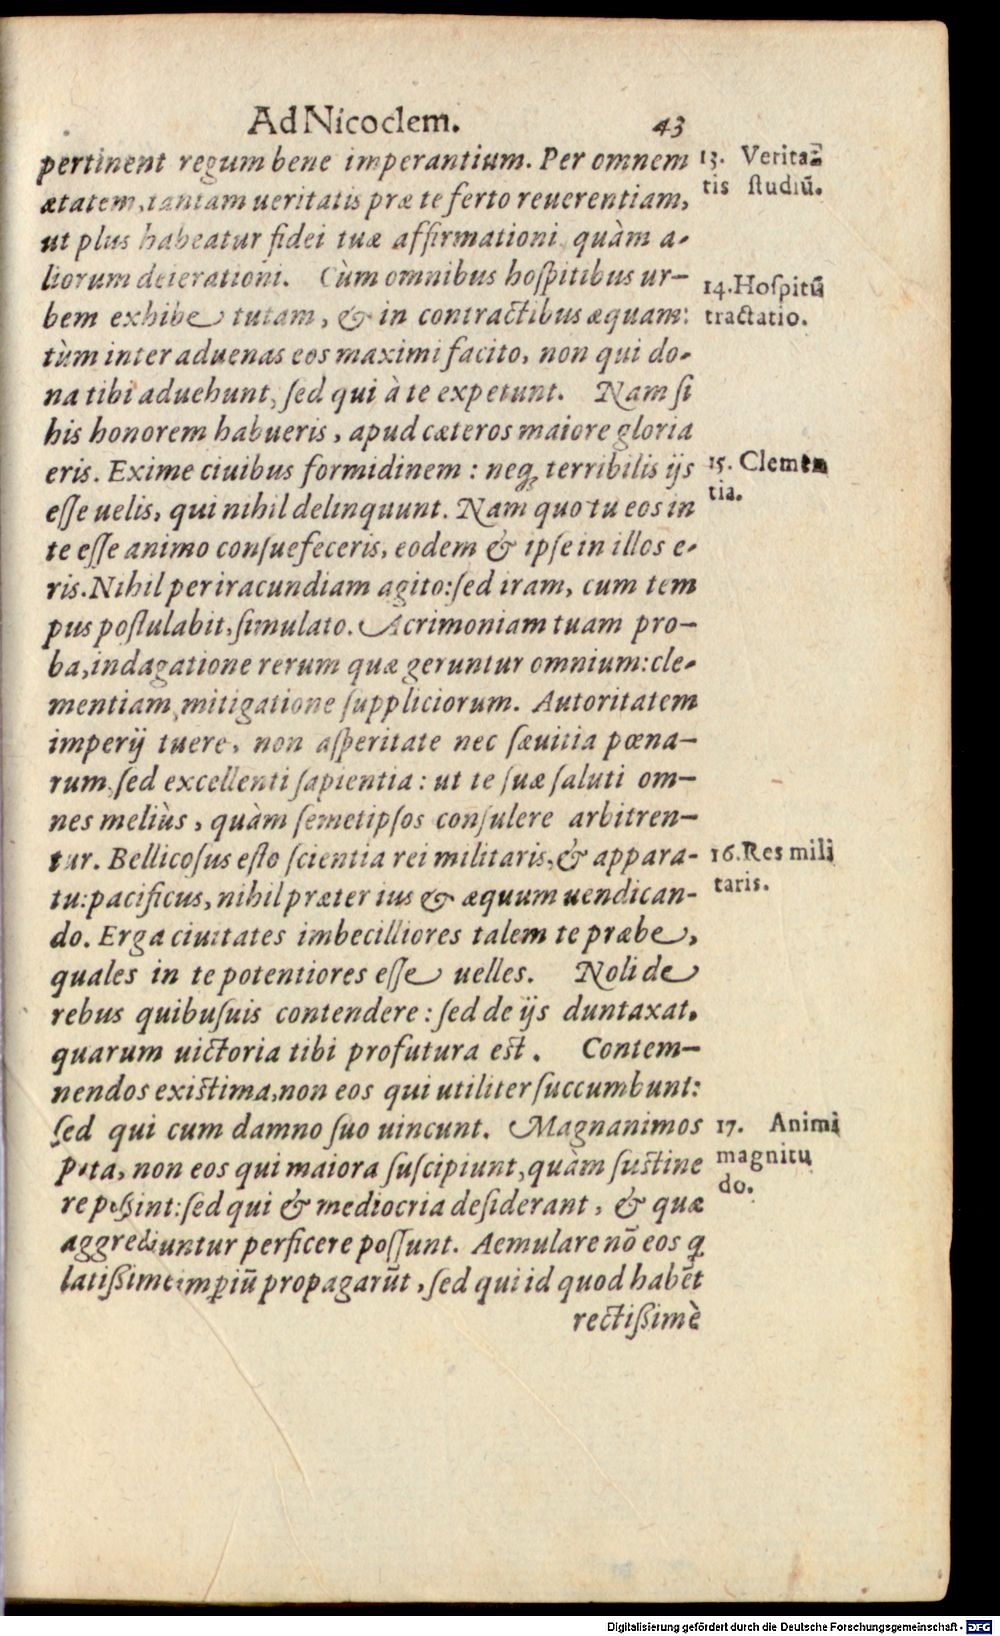 Ad Nicoclem. 43
pertinent regum bene imperantium. Per omnem
ætatem, tantam ueritatis præ te ferto reuerentiam,
ut plus habeatur fidei tuæ affirmationi, quàm a-
liorum deierationi. Cùm omnibus hoſpitibus ur-
bem exhibe tutam, & in contractibus æquam:
tùm inter aduenas eos maximi facito, non qui do-
na tibi aduehunt, ſed qui à te expetunt. Nam ſi
his honorem habueris, apud cæteros maiore gloria
eris. Exime ciuibus formidinem: neqꝫ terribilis ijs
eſſe uelis, qui nihil delinquunt. Nam quo tu eos in
te eſſe animo conſuefeceris, eodem & ipſe in illos e-
ris. Nihil per iracundiam agito: ſed iram, cum tem
pus poſtulabit, ſimulato. Acrimoniam tuam pro-
ba, indagatione rerum quæ geruntur omnium: cle-
mentiam, mitigatione ſuppliciorum. Autoritatem
imperij tuere, non aſperitate nec ſæuitia pœna-
rum, ſed excellenti ſapientia: ut te ſuæ ſaluti om-
nes meliùs, quàm ſemetipſos conſulere arbitren-
tur. Bellicoſus eſto ſcientia rei militaris, & appara-
tu: pacificus, nihil præter ius & æquum uendican-
do. Erga ciuitates imbecilliores talem te præbe,
quales in te potentiores eſſe uelles. Noli de
rebus quibuſuis contendere: ſed de ijs duntaxat,
quarum uictoria tibi profutura est. Contem-
nendos existima, non eos qui utiliter ſuccumbunt:
ſed qui cum damno ſuo uincunt. Magnanimos
puta, non eos qui maiora ſuſcipiunt, quàm ſustine
re poßint: ſed qui & mediocria deſiderant, & quæ
aggrediuntur perficere poſſunt. Aemulare nõ eos q
latißime impiũ propagarũt, ſed qui id quod habẽt
rectißimè
13. Verita=
tis ſtudiũ.
14. Hoſpitũ
tractatio.
15. Clemen
tia.
16. Res mili
taris.
17. Animi
magnitu
do.
Digitalisierung gefördert durch die Deutsche Forschungsgemeinschaft - DFG